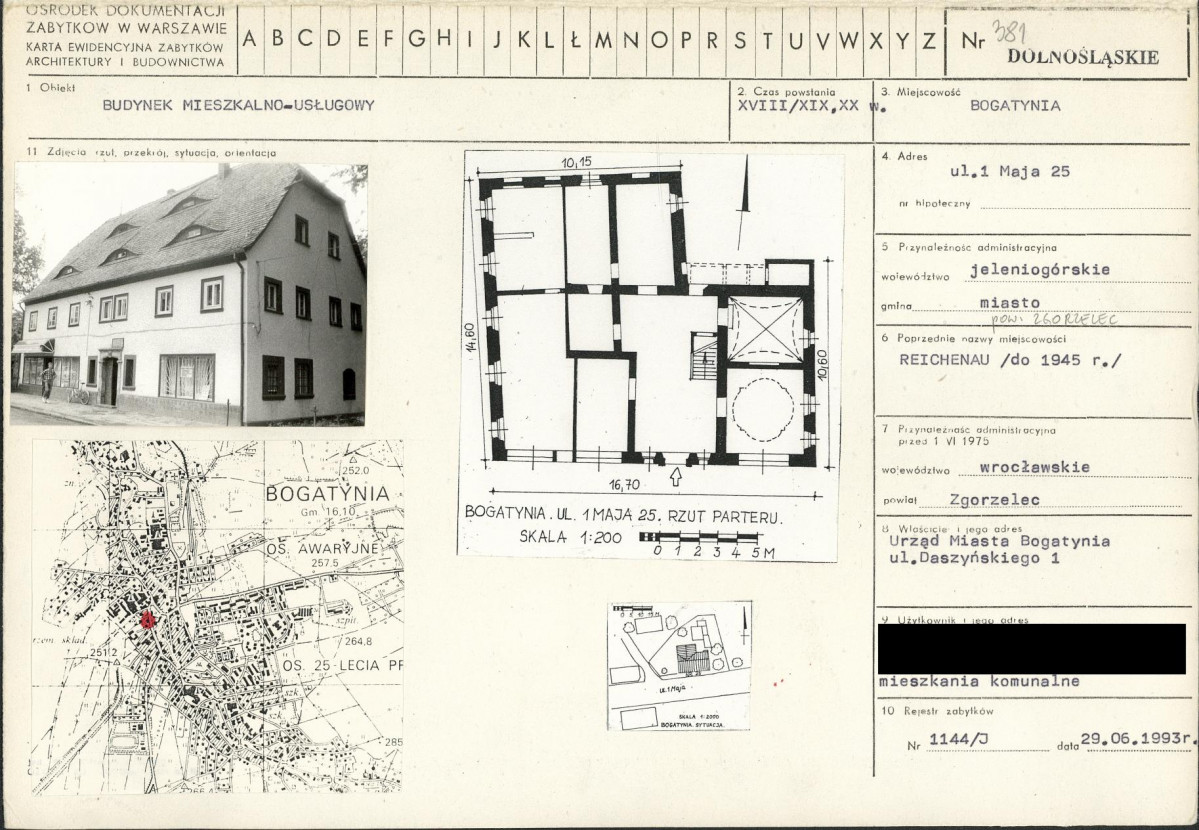 OŚRODEK DOKUMENTACJI
ZABYTKÓW W WARSZAWIE
KARTA EWIDENCYJNA ZABYTKÓW
ARCHITEKTURY I BUDOWNICTWA
A B C D E F G H I J K L Ł M N O P R S T U V W X Y Z
Nr 381
DOLNOŚLĄSKIE
1 Obiekt
BUDYNEK MIESZKALNO-USŁUGOWY
2. Czas powstania
XVIII/XIX,XX w.
3. Miejscowość
BOGATYNIA
11 Zdjęcia rzut, przekrój, sytuacja, orientacja
4. Adres
ul.1 Maja 25
nr hipoteczny
5 Przynależność administracyjna
województwo jeleniogórskie
gmina miasto
pow. ZGORZELEC
6 Poprzednie nazwy miejscowości
REICHENAU /do 1945 r./
7 Przynależność administracyjna
przed 1 VI 1975
województwo wrocławskie
powiat Zgorzelec
8 Właściciel i jego adres
Urząd Miasta Bogatynia
ul.Daszyńskiego 1
9 Użytkownik i jego adres
mieszkania komunalne
10 Rejestr zabytków
Nr 1144/J data 29.06.1993r.
10,15
14,60
10,60
16,70
BOGATYNIA. UL. 1 MAJA 25. RZUT PARTERU.
SKALA 1:200
0 1 2 3 4 5 M
252.0
BOGATYNIA
Gm. 16,10
OS. AWARYJNE
257.5
szpit.
rzem. skład.
264,8
251.2
OS. 25-LECIA PR
szk.
285
ul. 1 Maja
SKALA 1:2000
BOGATYNIA. SYTUACJA.